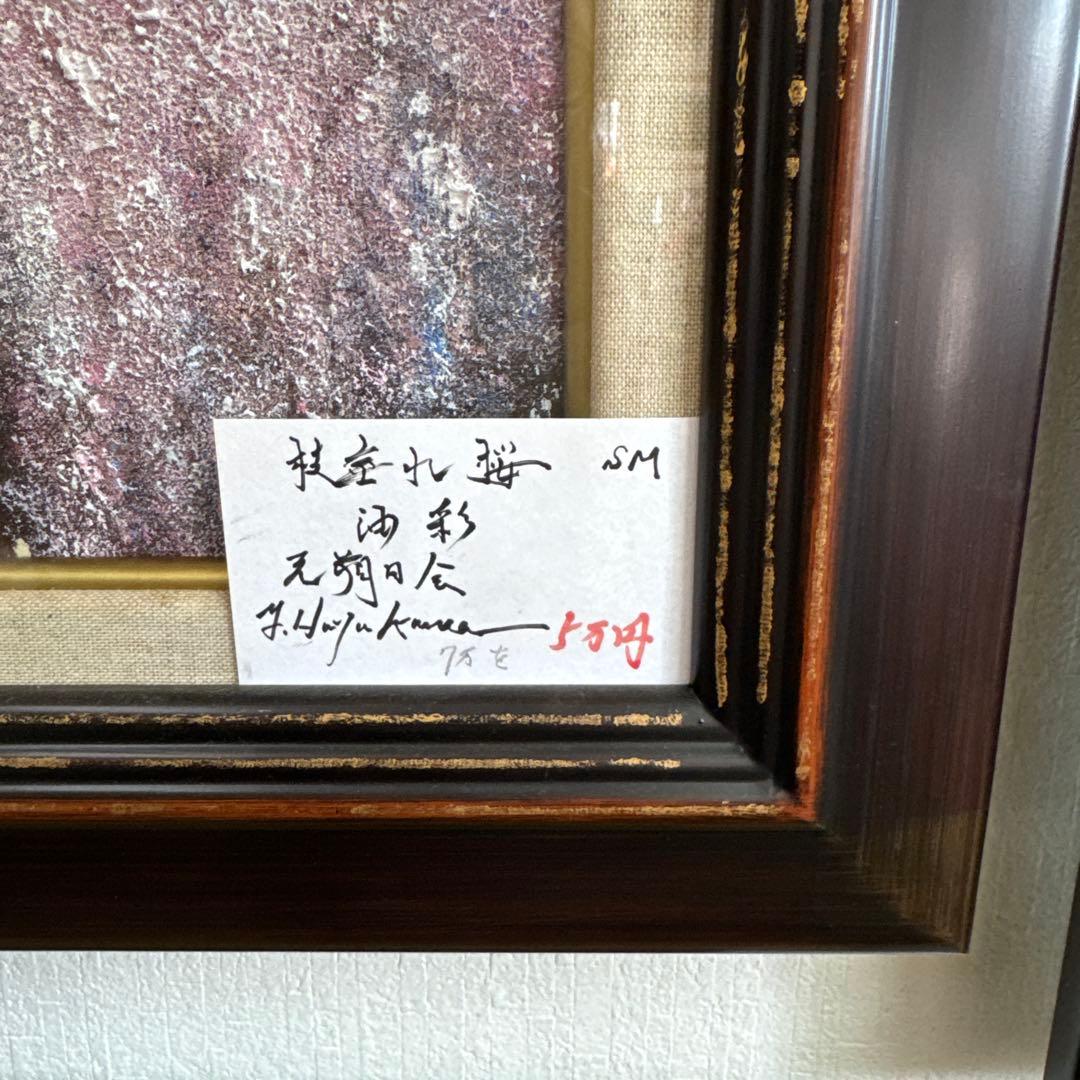 枝垂れ桜 SM
油彩
元朔日会
5万円
7万を